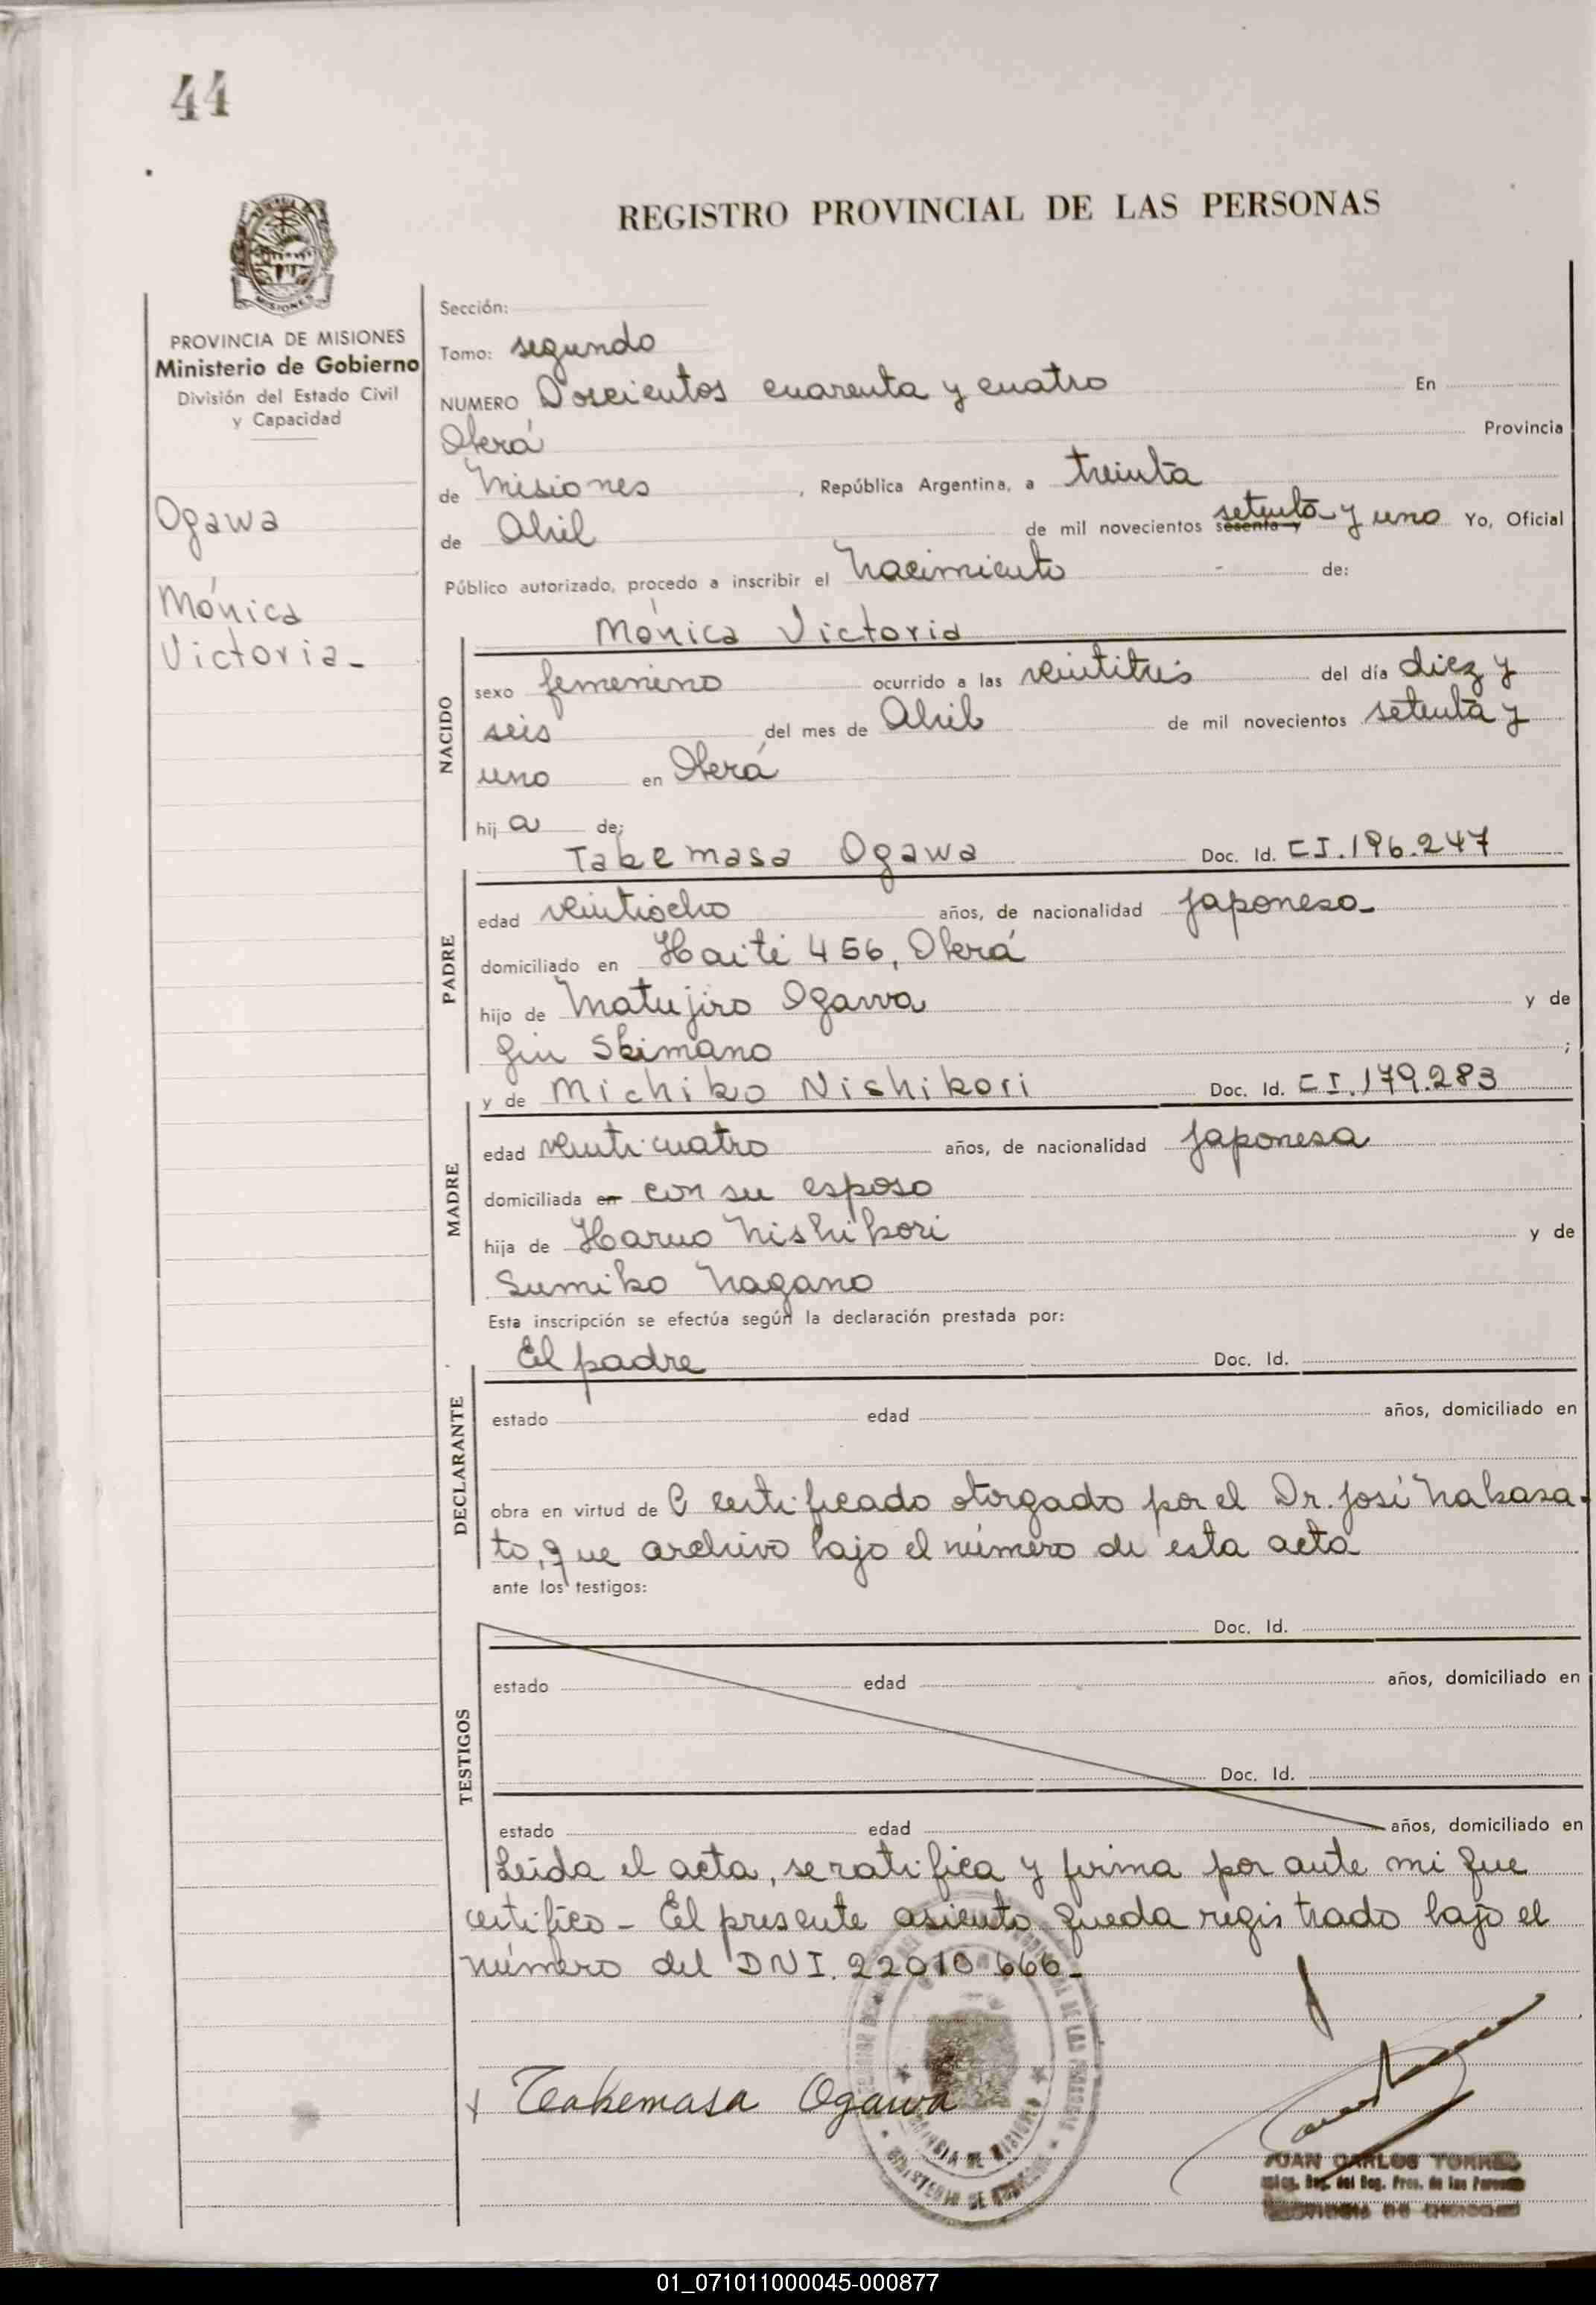 44
REGISTRO PROVINCIAL DE LAS PERSONAS
MISIONES
PROVINCIA DE MISIONES
Ministerio de Gobierno
División del Estado Civil
y Capacidad
Ogawa
Mónica
Victoria-
Sección:
Tomo: segundo
NUMERO Doscientos cuarenta y cuatro En
Oberá Provincia
de Misiones, República Argentina, a treinta
de Abril de mil novecientos sesenta y setenta y uno Yo, Oficial
Público autorizado, procedo a inscribir el nacimiento de:
Mónica Victoria
NACIDO
sexo femenino ocurrido a las veintitrés del día diez y
seis del mes de Abril de mil novecientos setenta y
uno en Oberá
hija de:
Takemasa Ogawa Doc. Id. CI.196.247
PADRE
edad veintiocho años, de nacionalidad japonesa-
domiciliado en Haití 456, Oberá
hijo de Matujiro Ogawa y de
Gin Skimano ;
y de Michiko Nishikori Doc. Id. CI.179.283
MADRE
edad veinticuatro años, de nacionalidad japonesa
domiciliada en con su esposo
hija de Haruo Nishikori y de
Sumiko Nagano
Esta inscripción se efectúa según la declaración prestada por:
El padre Doc. Id.
DECLARANTE
estado edad años, domiciliado en
obra en virtud de certificado otorgado por el Dr. José Nakasa-
to, que archivo bajo el número de esta acta
ante los testigos:
Doc. Id.
TESTIGOS
estado edad años, domiciliado en
Doc. Id.
estado edad años, domiciliado en
Leída el acta, se ratifica y firma por ante mi que
certifico - El presente asiento queda registrado bajo el
número del DNI. 22010666-
x Takemasa Ogawa
JUAN CARLOS TORRES
01_071011000045-000877